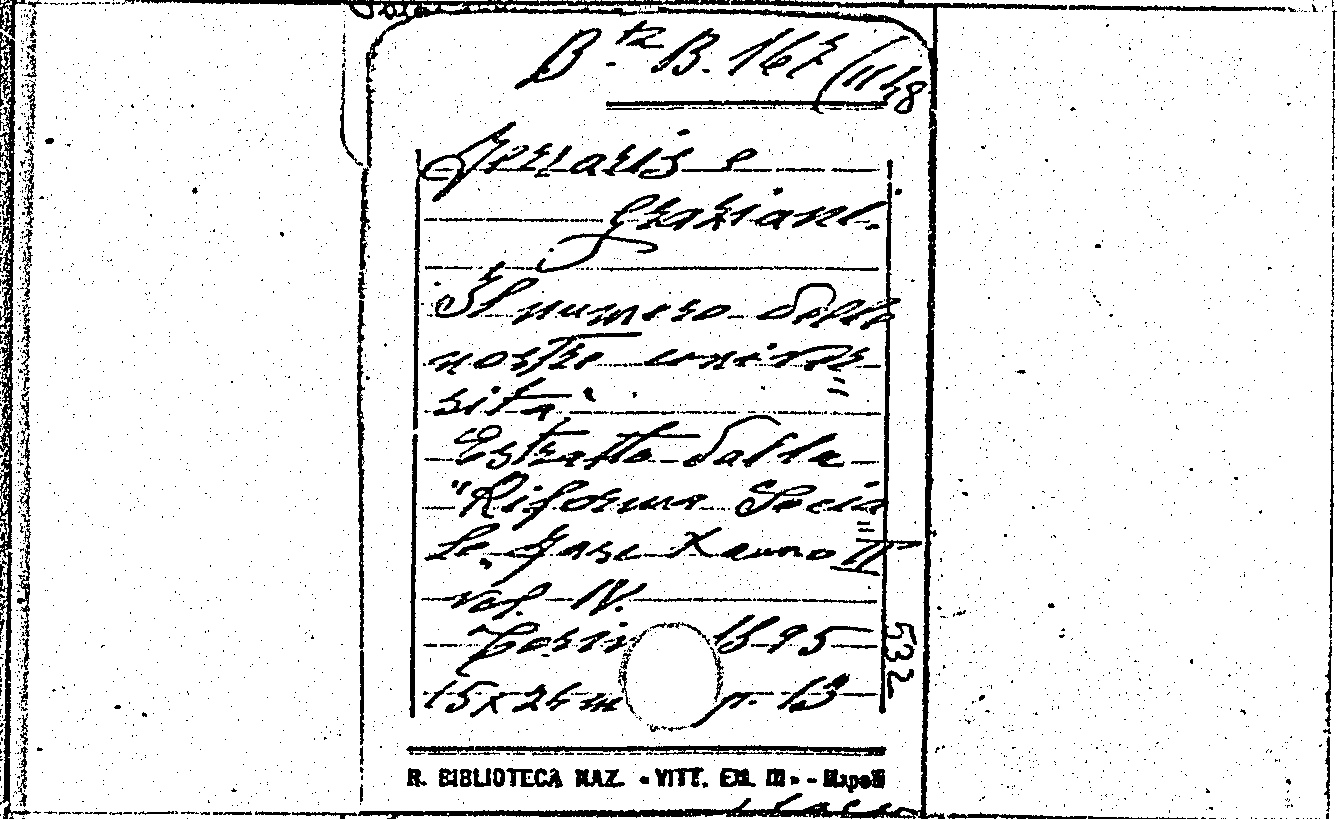 B.ta B. 167 (1148
Ferraris e
Graziani.
Il numero delle
nostre univer=
sità.
Estratto dalla
"Riforma Socia=
le" Fasc X anno II
vol. IV.
Torin 1895
15x24 m p. 13
532
R. BIBLIOTECA NAZ. «VITT. EM. III» - Napoli